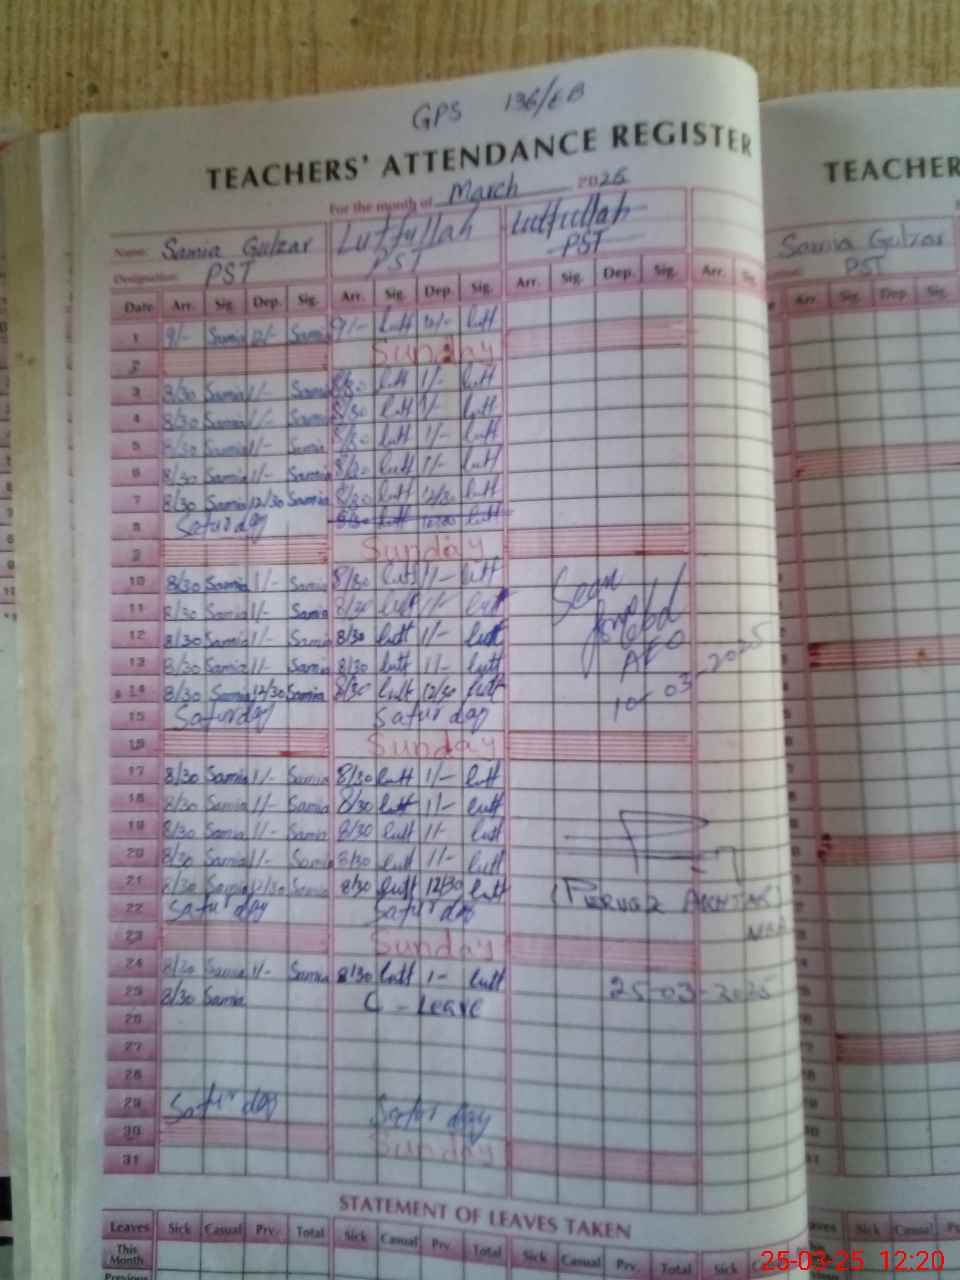 GPS 136/EB
TEACHERS' ATTENDANCE REGISTER
For the month of March 2025
Name: Samia Gulzar Lutfullah Lutfullah
Designation: PST PST PST
Date Arr. Sig. Dep. Sig. Arr. Sig. Dep. Sig. Arr. Sig. Dep. Sig. Arr. Sig.
1 9/- Samia 12/- Samia 9/- lutf 12/- lutf
2 Sunday
3 8/30 Samia 1/- Samia 8/30 lutf 1/- lutf
4 8/30 Samia 1/- Samia 8/30 lutf 1/- lutf
5 8/30 Samia 1/- Samia 8/30 lutf 1/- lutf
6 8/30 Samia 1/- Samia 8/30 lutf 1/- lutf
7 8/30 Samia 12/30 Samia 8/30 lutf 12/30 lutf
8 Saturday 8/30 lutf lutf
9 Sunday
10 8/30 Samia 1/- Samia 8/30 lutf 1/- lutf
11 8/30 Samia 1/- Samia 8/30 lutf 1/- lutf
12 8/30 Samia 1/- Samia 8/30 lutf 1/- lutf
13 8/30 Samia 1/- Samia 8/30 lutf 1/- lutf
14 8/30 Samia 12/30 Samia 8/30 lutf 12/30 lutf
15 Saturday Saturday
16 Sunday
17 8/30 Samia 1/- Samia 8/30 lutf 1/- lutf
18 8/30 Samia 1/- Samia 8/30 lutf 1/- lutf
19 8/30 Samia 1/- Samia 8/30 lutf 1/- lutf
20 8/30 Samia 1/- Samia 8/30 lutf 1/- lutf
21 8/30 Samia 12/30 Samia 8/30 lutf 12/30 lutf
22 Saturday Saturday
23 Sunday
24 8/30 Samia 1/- Samia 8/30 lutf 1- lutf
25 8/30 Samia C - Leave
26
27
28
29 Saturday Saturday
30 Sunday
31
Seen
AEO
10-03-2025
(Pervaiz Akhtar)
25-03-2025
STATEMENT OF LEAVES TAKEN
Leaves Sick Casual Prv. Total Sick Casual Prv. Total Sick Casual Prv. Total Sick
This Month
Previous
TEACHER
Samia Gulzar
PST
Arr. Sig. Dep. Sig.
Sick Casual
25-03-25 12:20